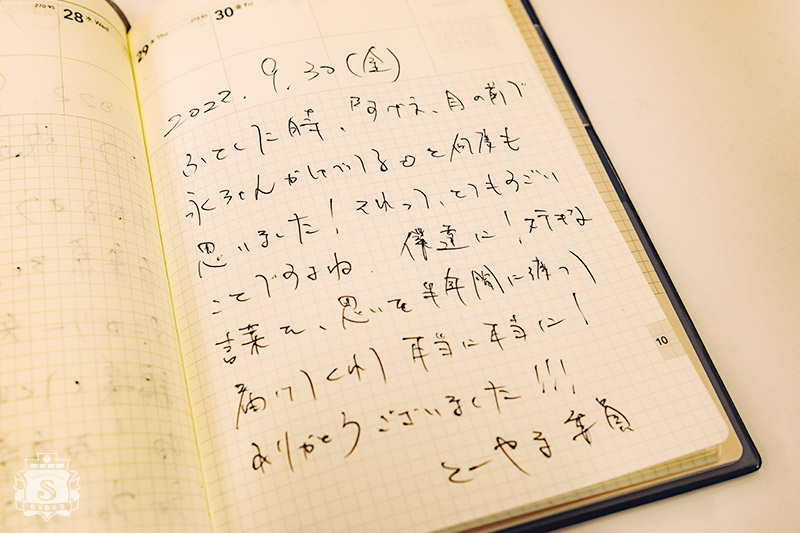 28 水 Wed
29 木 Thu
30 金 Fri
2022. 9. 30 (金)
ふとした時、目の前で
永ちゃんがしゃべってる と何度も
思いました！それって、とてもすごい
ことですよね. 僕達に！ステキな
言葉を、思いを半年間に渡って
届けてくれて本当に本当に！
ありがとうございました!!!
とーやま委員
10
S